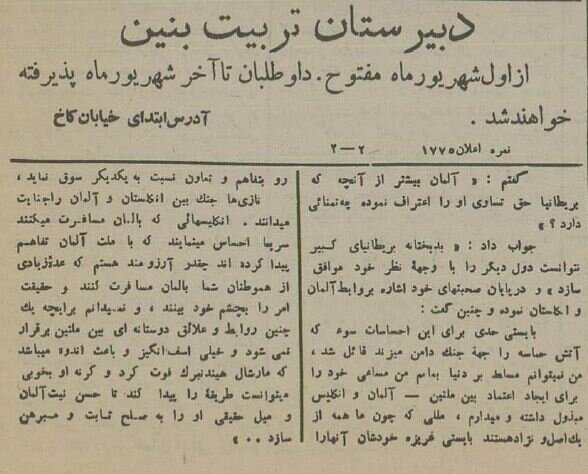 دبیرستان تربیت بنین
از اول شهریور ماه مفتوح . داوطلبان تا آخر شهریور ماه پذیرفته
خواهند شد . آدرس ابتدای خیابان کاخ
نمره اعلان ۱۷۷۵ ۲—۲
گفتم : « آلمان بیشتر از آنچه که
بریطانیا حق تساوی او را اعتراف نموده چه تمنائی
دارد ؟ »
جواب داد : « بدبختانه بریطانیای کبیر
نتوانست دول دیگر را با وجههٔ نظر خود موافق
سازد » و درپایان صحبتهای خود اشاره بروابط آلمان
و انکلستان نموده و چنین گفت :
بایستی حدی برای این احساسات سوء که
آتش حماسه را جههٔ جنك دامن میزند قائل شد ،
من نمیتوانم مسلط بر دنیا بمانم من مساعی خود را
برای ایجاد اعتماد بین ملتین — آلمان و انکلیس
مبذول داشته و میدارم ، مللی که چون ما همه از
یك اصل و نژاد هستند بایستی غریزه خودشان آنهارا
رو بتفاهم و تعاون نسبت به یکدیگر سوق نماید ،
نازی‌ها جنك بین انکلستان و آلمان راجنایت
میدانند . انکلیسهائی که بالمان مسافرت میکنند
سریعا احساس مینمایند که با ملت آلمان تفاهم
پیدا کرده اند چقدر آرزو مند هستم که عدهٔزیادی
از هموطنان شما بالمان مسافرت کنند و حقیقت
امر را بچشم خود ببینند ، و نمیدانم برایچه یك
چنین روابط و علائق دوستانه ای بین ملتین برقرار
نمی شود و خیلی اسف انگیز و باعث اندوه میباشد
که مارشال هیندنبرك فوت کرد و گرنه او بخوبی
میتوانست طریقهٔ را پیدا کند تا حسن نیت آلمان
و میل حقیقی او را به صلح ثابت و مبرهن
سازد . . »